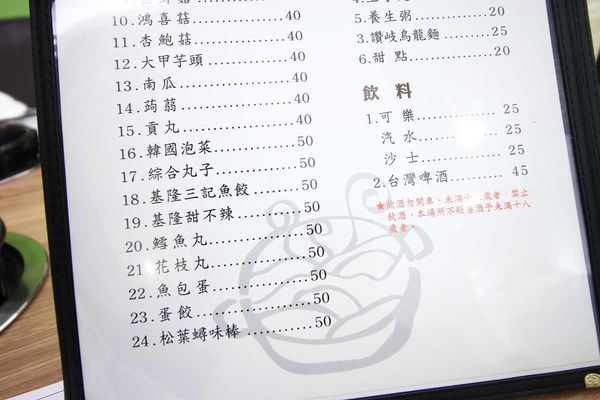 10.鴻喜菇................40
11.杏鮑菇................40
12.大甲芋頭............40
13.南瓜....................40
14.蒟蒻....................40
15.貢丸....................40
16.韓國泡菜............50
17.綜合丸子............50
18.基隆三記魚餃........50
19.基隆甜不辣............50
20.鱈魚丸................50
21.花枝丸................50
22.魚包蛋................50
23.蛋餃....................50
24.松葉蟳味棒............50
5.養生粥................20
3.讚岐烏龍麵............25
6.甜 點................20
飲 料
1.可 樂................25
汽 水................25
沙 士................25
2.台灣啤酒............45
★飲酒勿開車、未滿十八歲者、禁止
飲酒、本場所不販售酒予未滿十八
歲者。